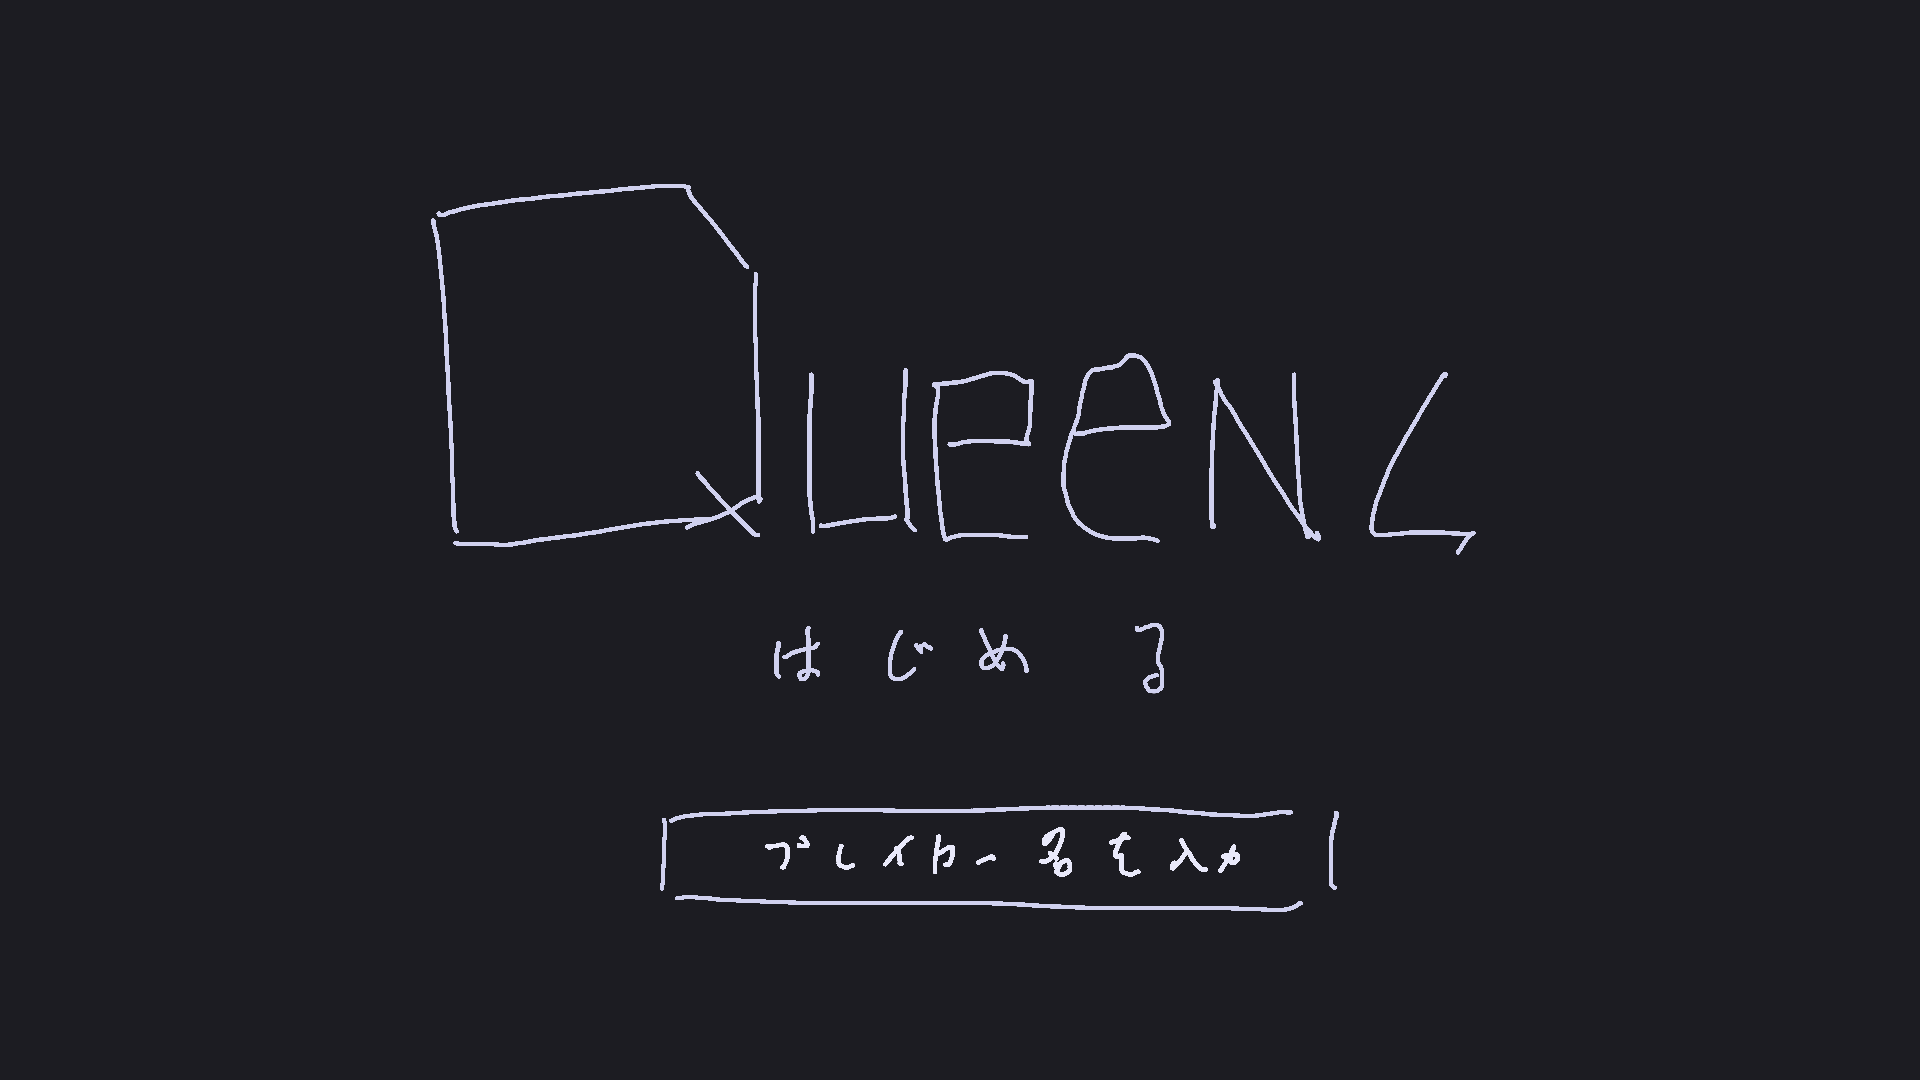 QUEEN
はじめる
プレイヤー名を入力